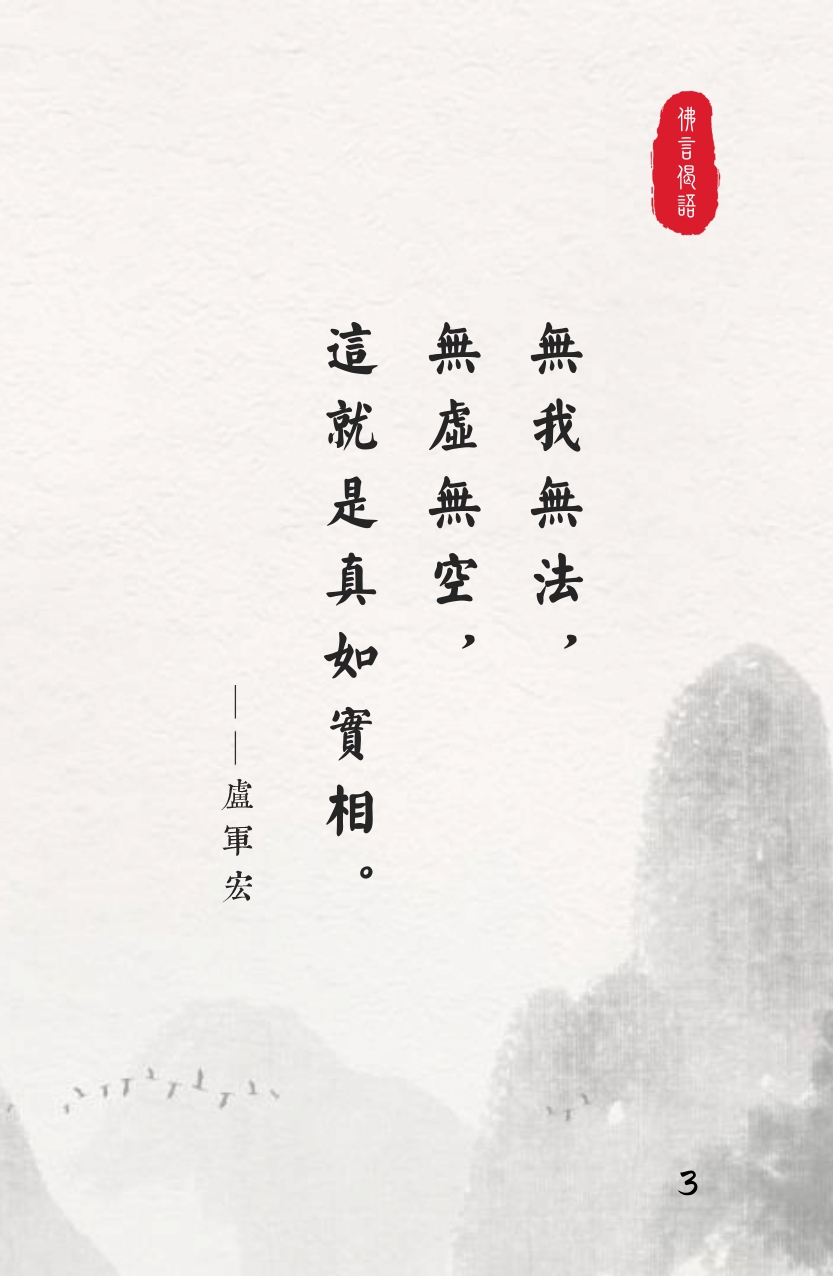 佛言偈語
無我無法，
無虛無空，
這就是真如實相。
——盧軍宏
3